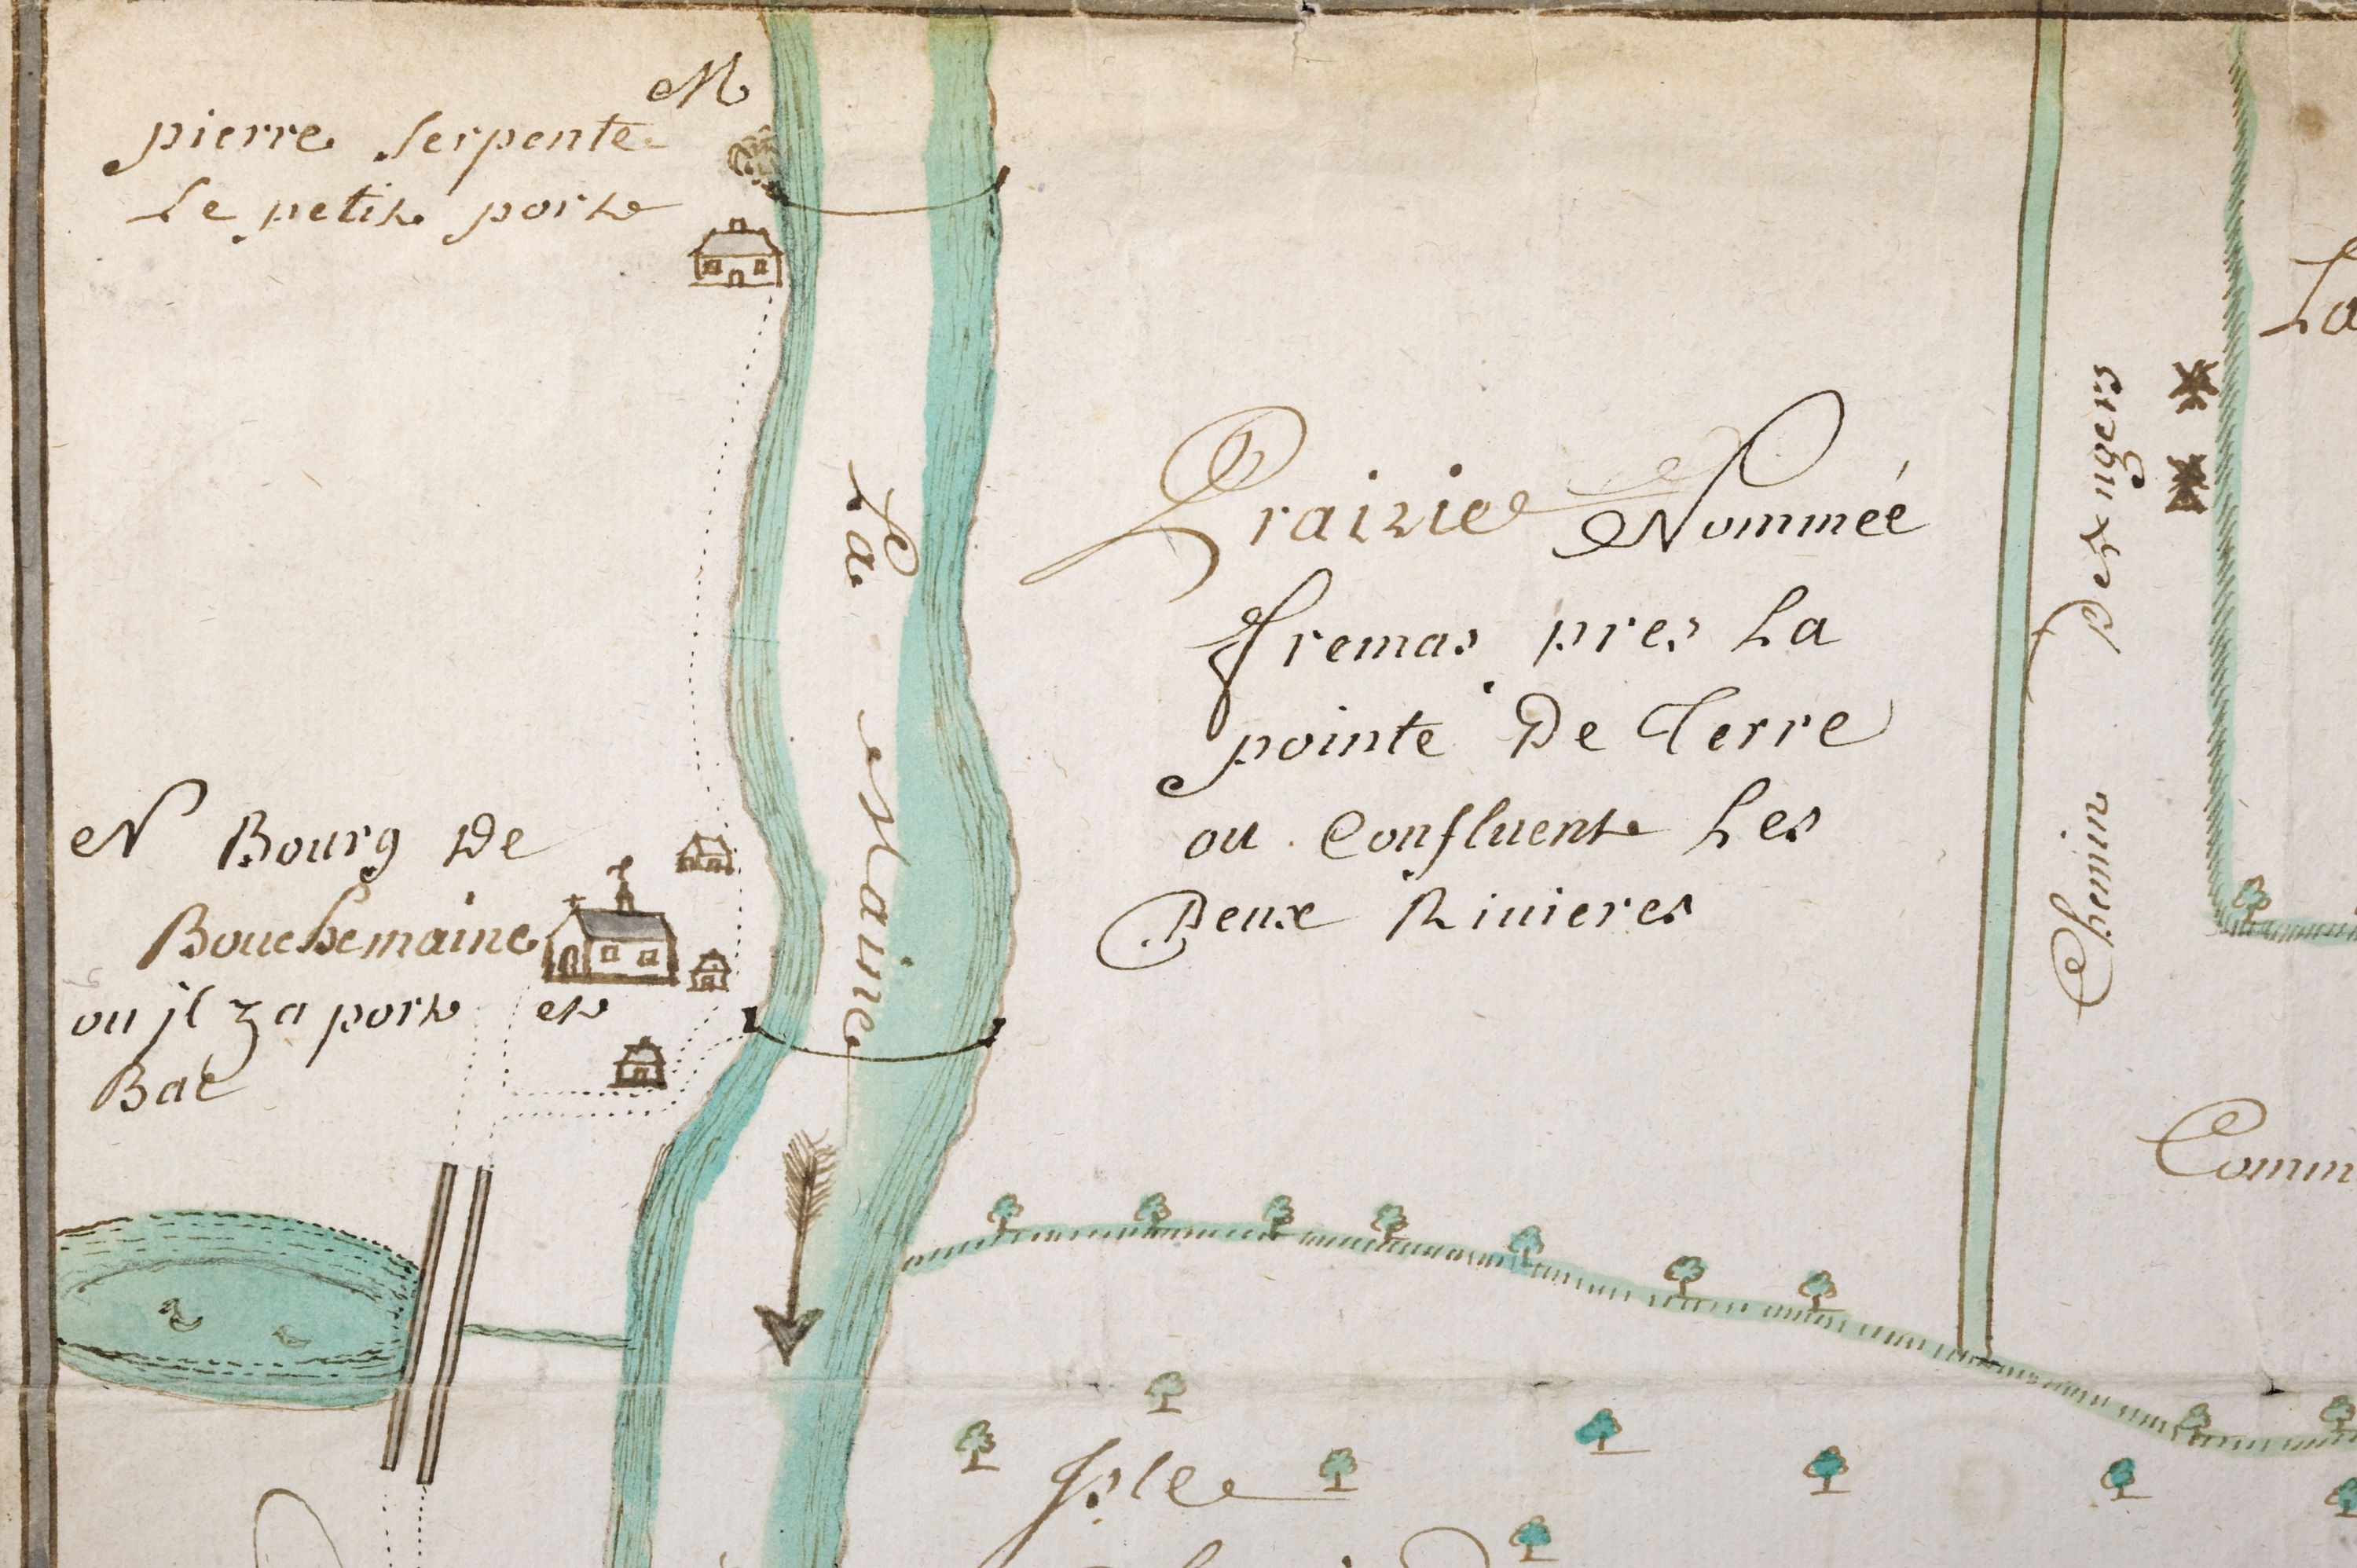 M
pierre serpente
Le petit port
La Maine
Prairie Nommée
fremas pres La
pointe De Terre
ou Confluent Les
Deux Rivieres
Chemin
La
N Bourg De
Bouchemaine
ou jl y a port et
Bac
Comm
Isle